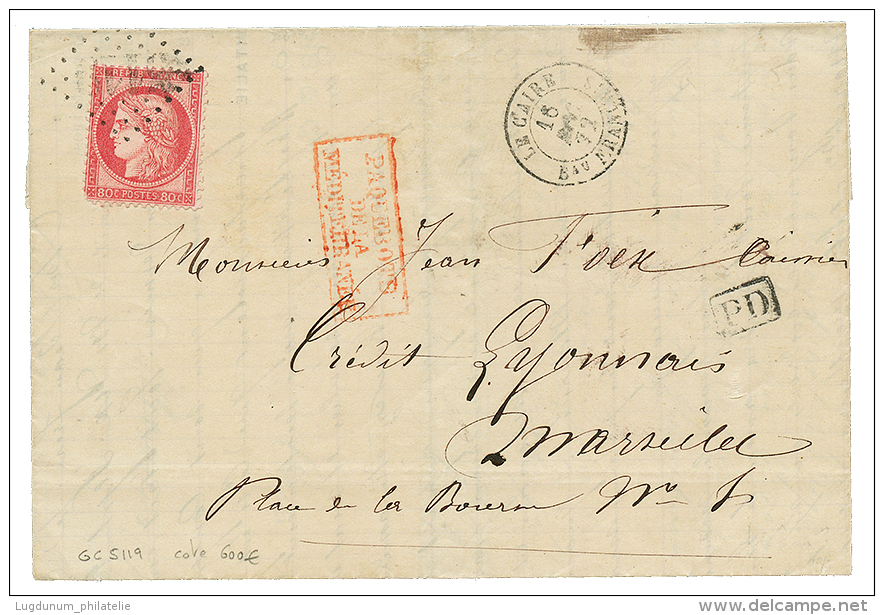 REPUB. FRANC.
80C POSTES 80C
LE CAIRE
Bau FRANÇAIS
18
72
PAQUEBOTS
DE LA
MÉDITERRANÉE
Monsieur Jean
PD
Crédit Lyonnais
Marseille
Place de la Bourse No
GC 5119 cote 600€
Lugdunum_philatelie
delcampe.net